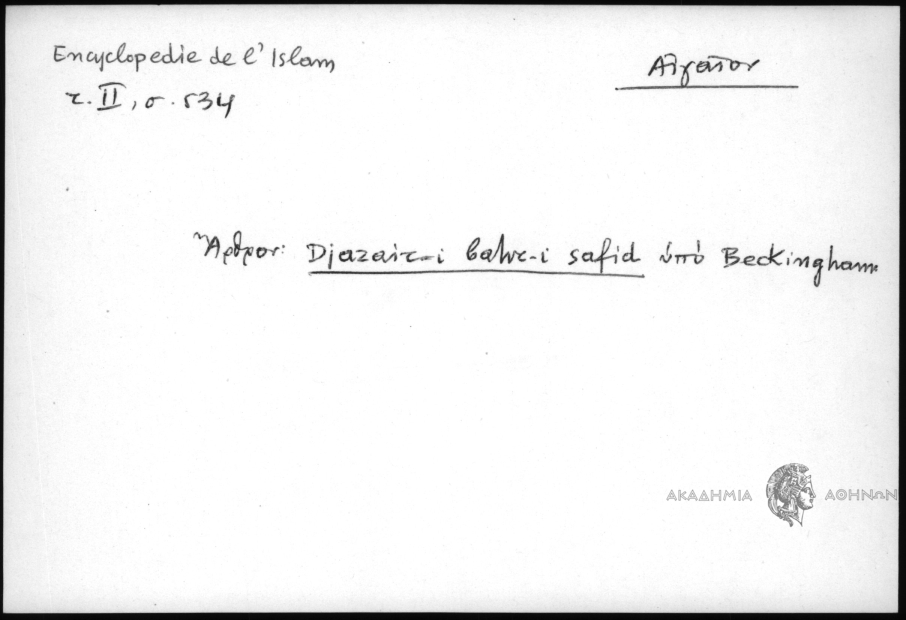 Encyclopedie de l' Islam
Αἰγαῖον
τ. II, σ. 534
Ἄρθρον: Djazair-i bahr-i safid ὑπό Beckingham
ΑΚΑΔΗΜΙΑ ΑΘΗΝΩΝ